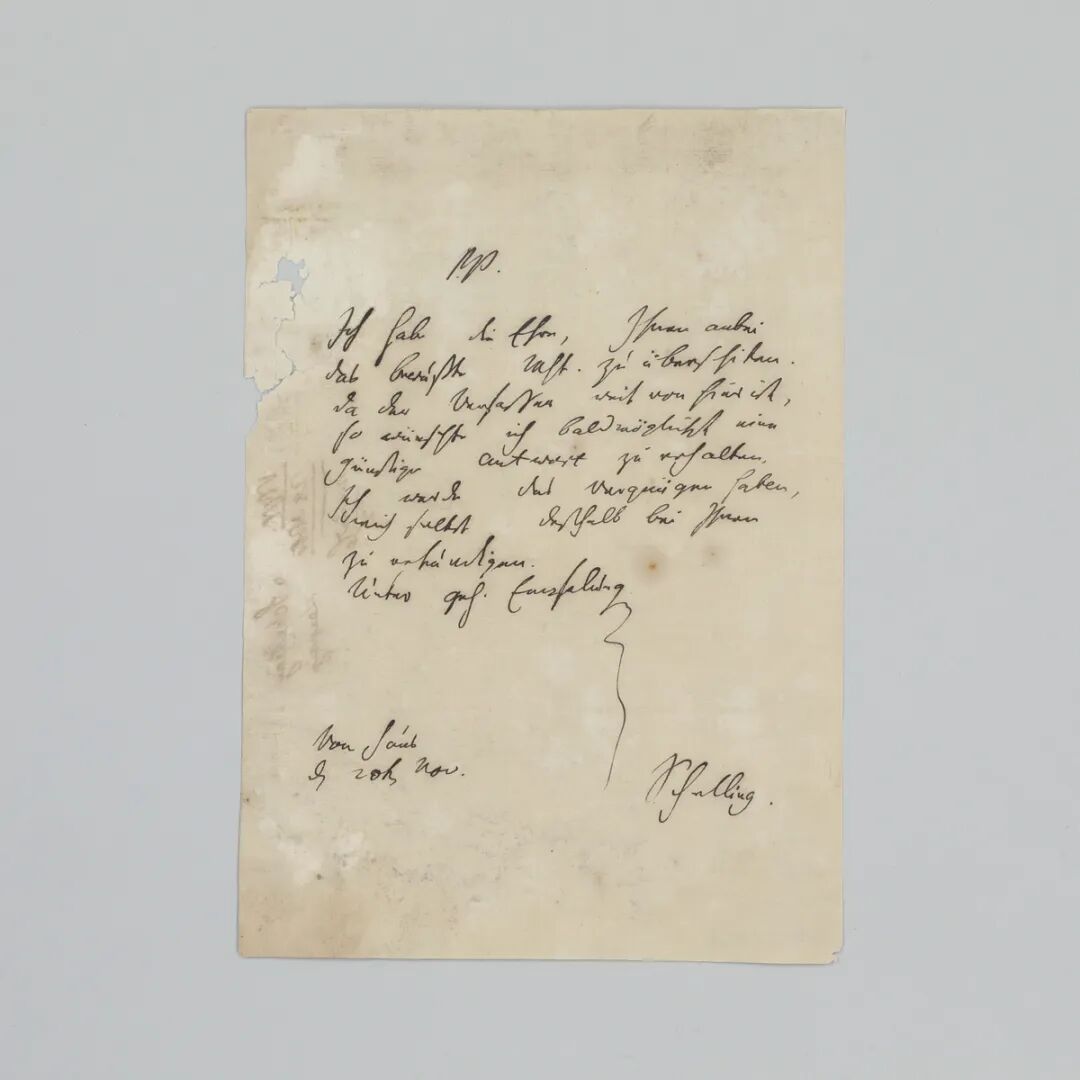 P.P.
Ich habe die Ehre, Ihnen anbei
das bewußte Mspt. zu überschiken.
da der Verfasser weit von hier ist,
so wünschte ich baldmöglichst eine
günstige Antwort zu erhalten.
Ich werde das Vergnügen haben,
mich selbst deßhalb bei Ihnen
zu erkundigen.
Unter geh. Empfehlung
Von Haus
d. 20t. Nov.
Schelling.